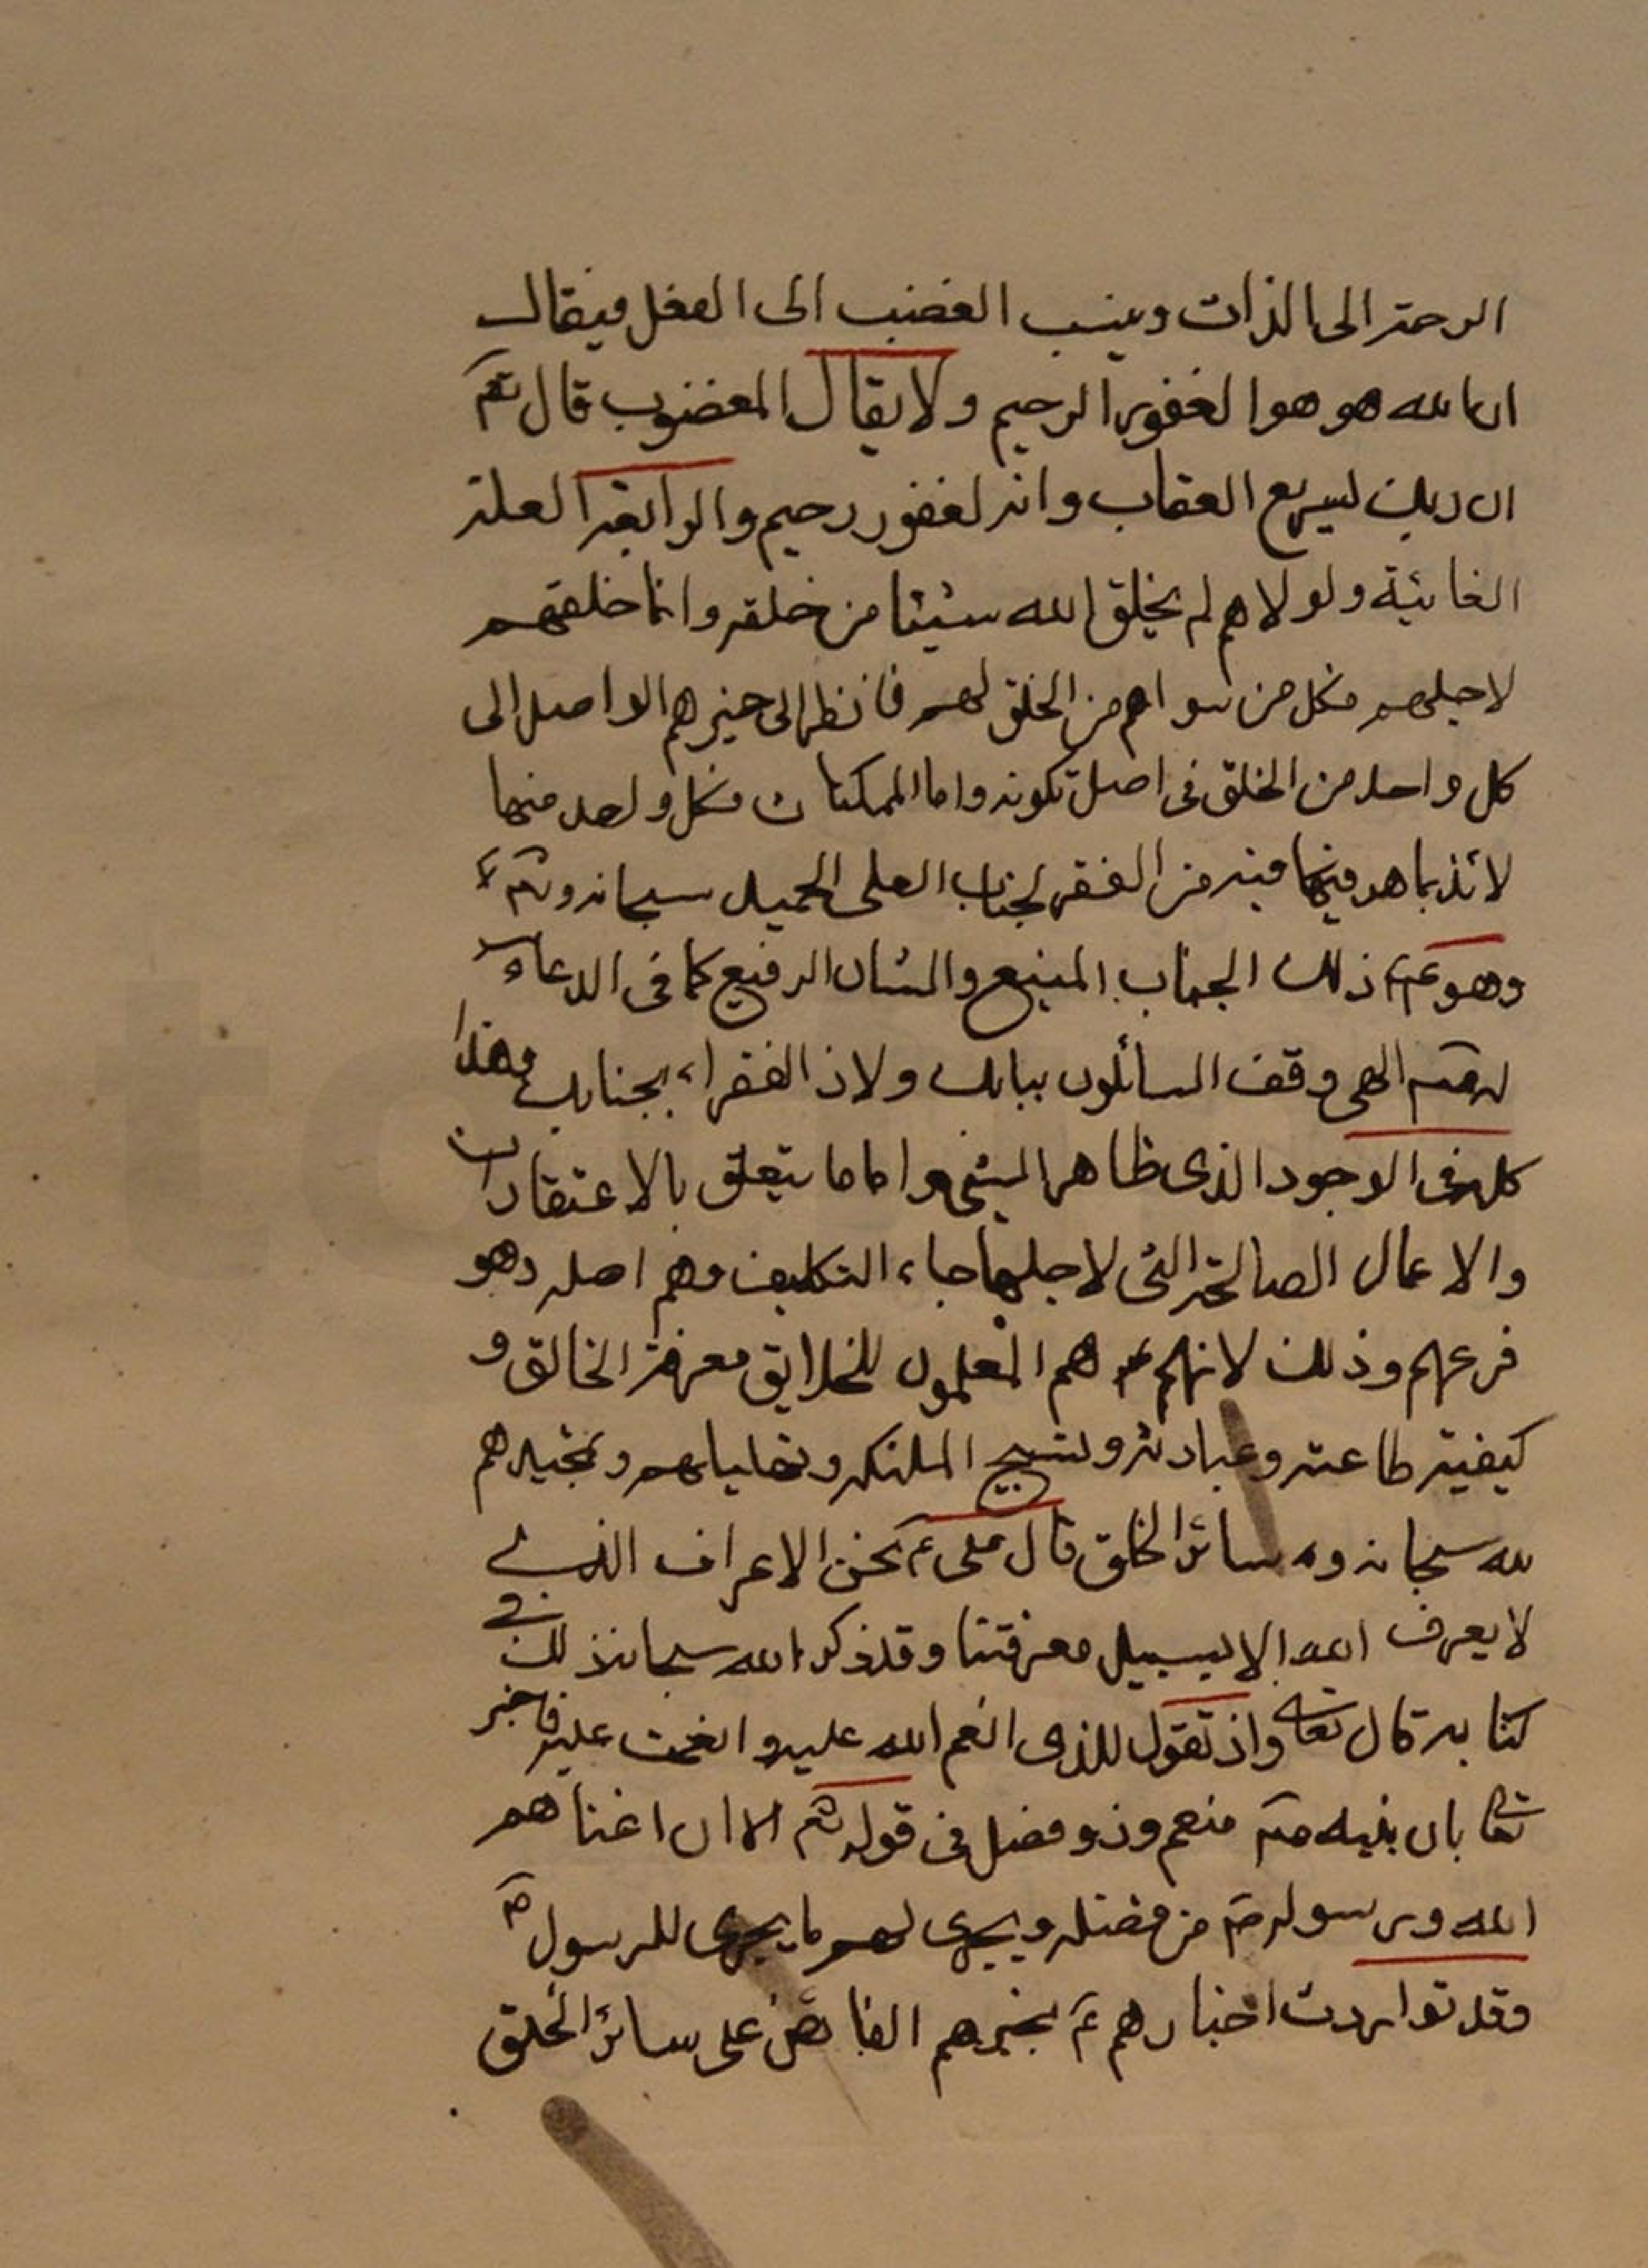 الرحمة الى الذات وينسب الغضب الى الفعل فيقال
ان الله هو هو الغفور الرحيم ولا يقال المغضوب قال تعم
ان ربك لسريع العقاب وانه لغفور رحيم والرابعة العلة
الغائية ولولاهم لم يخلق الله شيئا من خلقه وانما خلقهم
لاجلهم فكل من سواهم من الخلق لهم فانظر الى خيرهم الواصل الى
كل واحد من الخلق فى اصل تكونه واما الممكنات فكل واحد منها
لائذ بما هو فيها فيه من الفقر لجناب العلى الحميد سبحانه وتعم
وهو ذلك الجناب المنيع والشان الرفيع كما فى الدعاء
الهى وقف السائلون ببابك ولاذ الفقراء بجنابك وهذا
كله فى الوجود الذى ظاهر الشىء واما ما يتعلق بالاعتقادات
والاعمال الصالحة التى لاجلها جاء التكليف فهم اصله وهو
فرعهم وذلك لانهم ع هم المعلمون للخلايق معرفة الخالق و
كيفية طاعته وعبادته وتسبيح الملئكة وتهليلهم وتمجيدهم
لله سبحانه و سائر الخلق قال على ع نحن الاعراف الذى
لا يعرف الله الا بسبيل معرفتنا وقد ذكر الله سبحانه ذلك فى
كتابه قال تعالى واذ تقول للذى انعم الله عليه وانعمت عليه فاخبر
تعالى بان نبيه ص منعم وذو فضل فى قوله تعم الا ان اغناهم
الله ورسوله ص من فضله ويجرى لهم ما يجرى للرسول ص
وقد تواردت اخبارهم ع بخيرهم الفائض على سائر الخلق